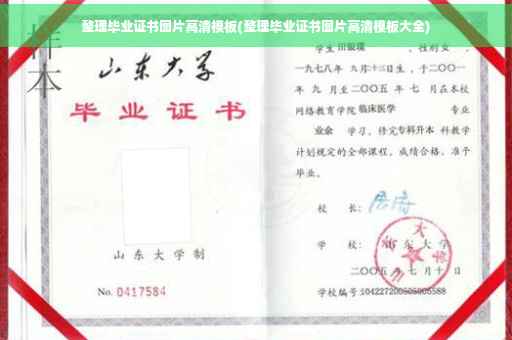 整理毕业证书图片高清模板(整理毕业证书图片高清模板大全)
样本
山东大学
毕业证书
山东大学制
No. 0417584
学生 田银瑞 ，性别女，
一九七八年 九月十三日生，于二〇〇一
年 九 月至二〇〇五 年 七 月在本校
网络教育学院 临床医学 专业
业余 学习，修完专科升本 科教学
计划规定的全部课程，成绩合格，准予
毕业。
校 长：
学 校：山东大学
二〇〇五 年 七 月 十 日
学校编号:104227200505005588